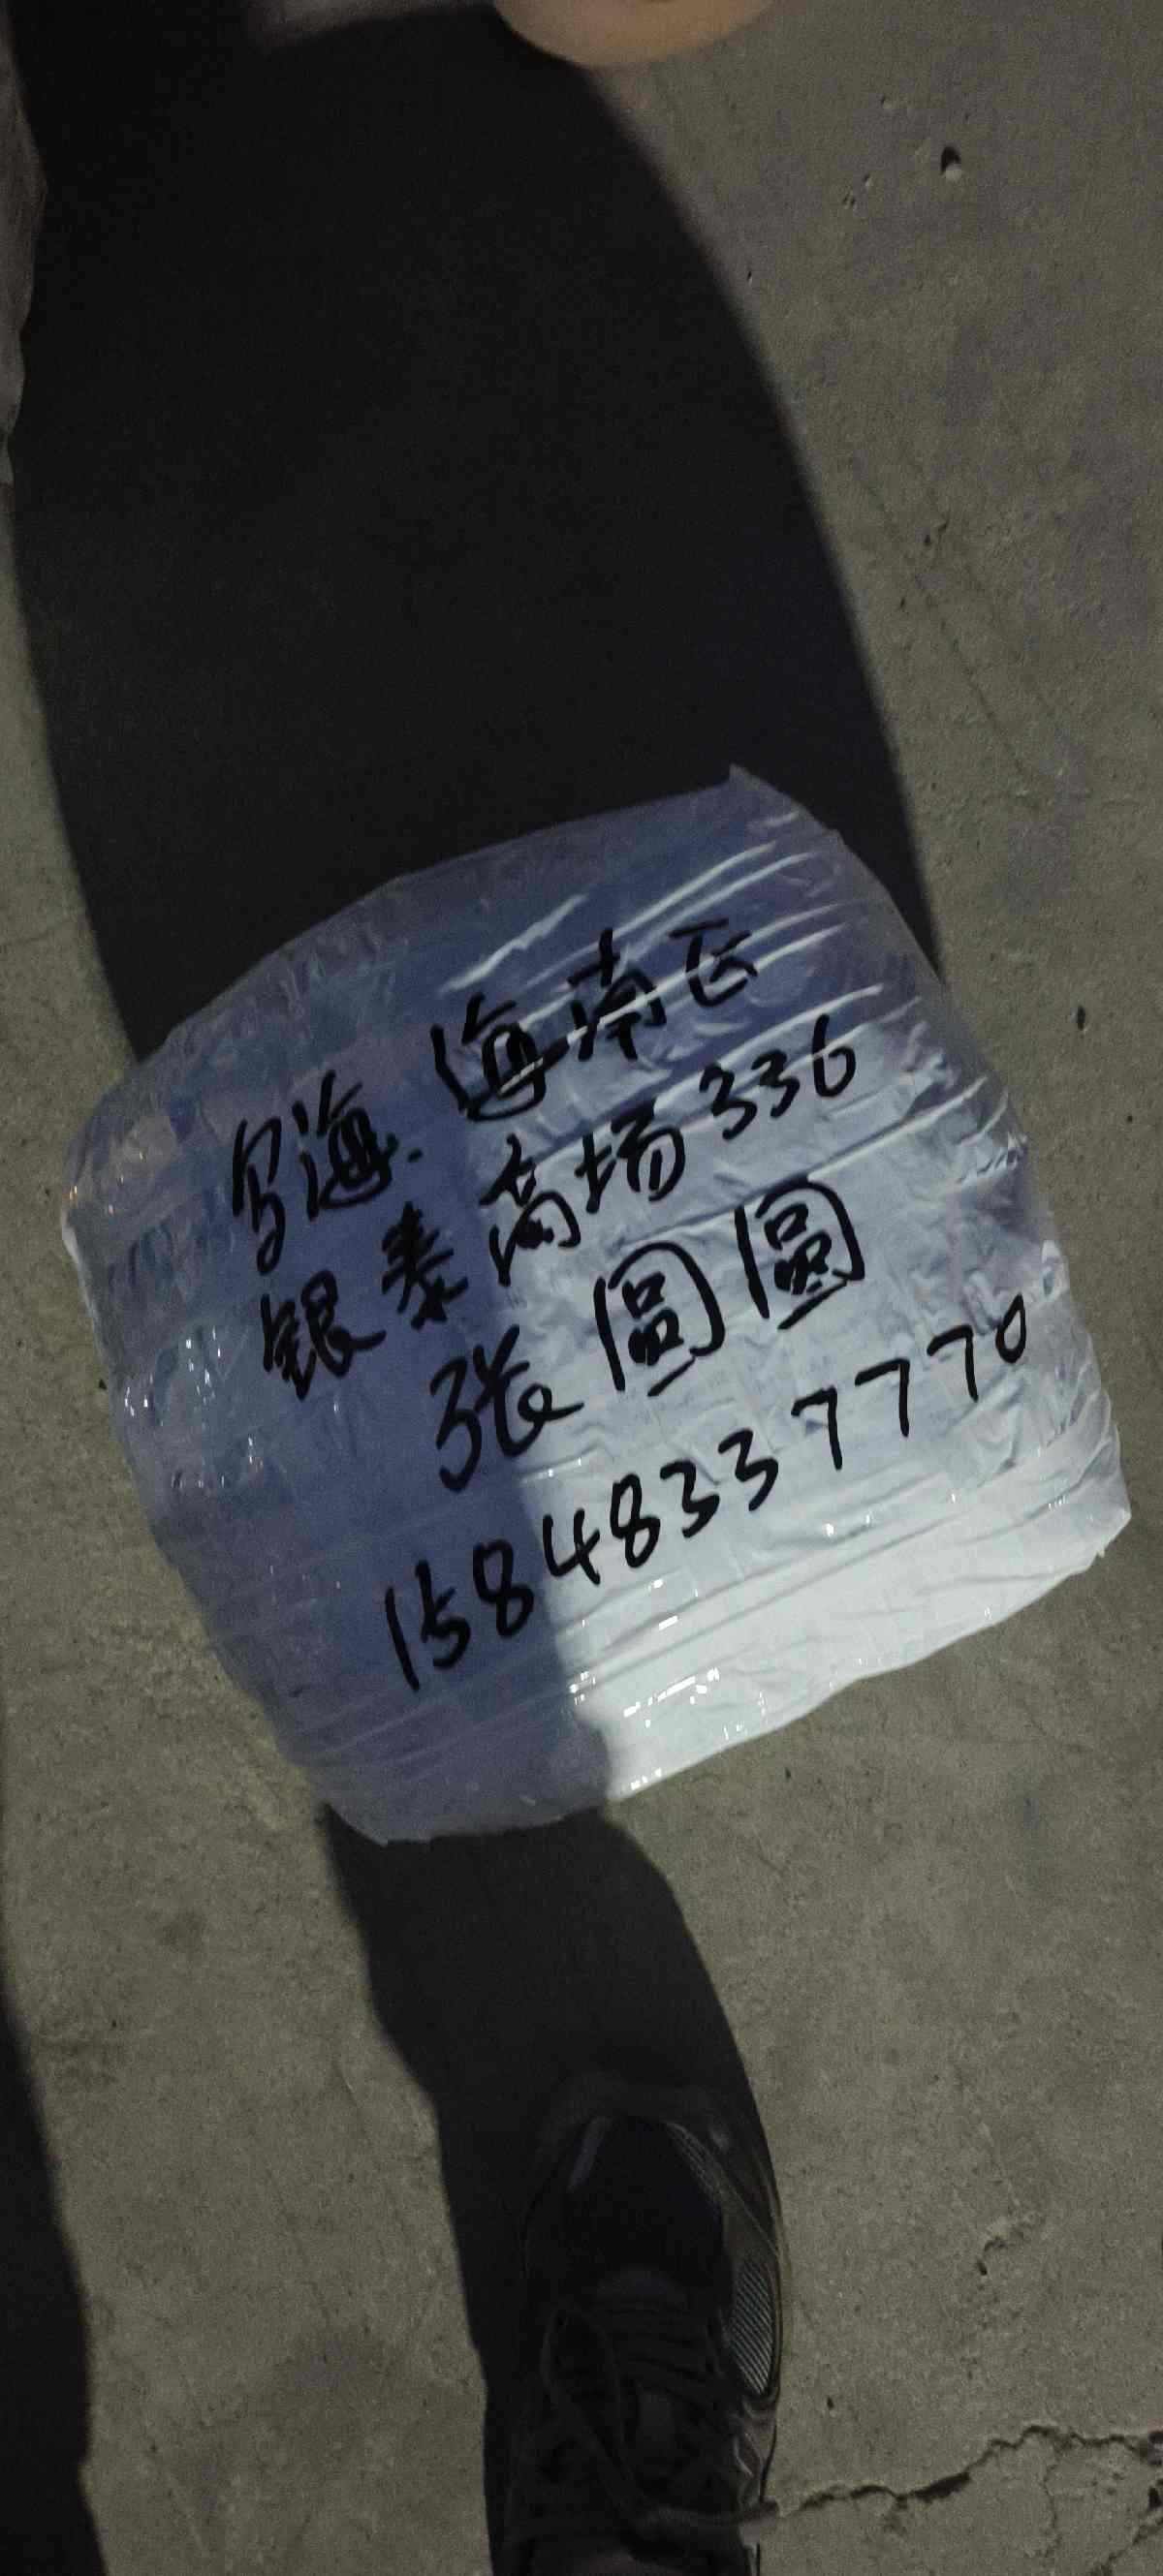 乌海.海南区
银泰商场336
张圓圓
15848337770